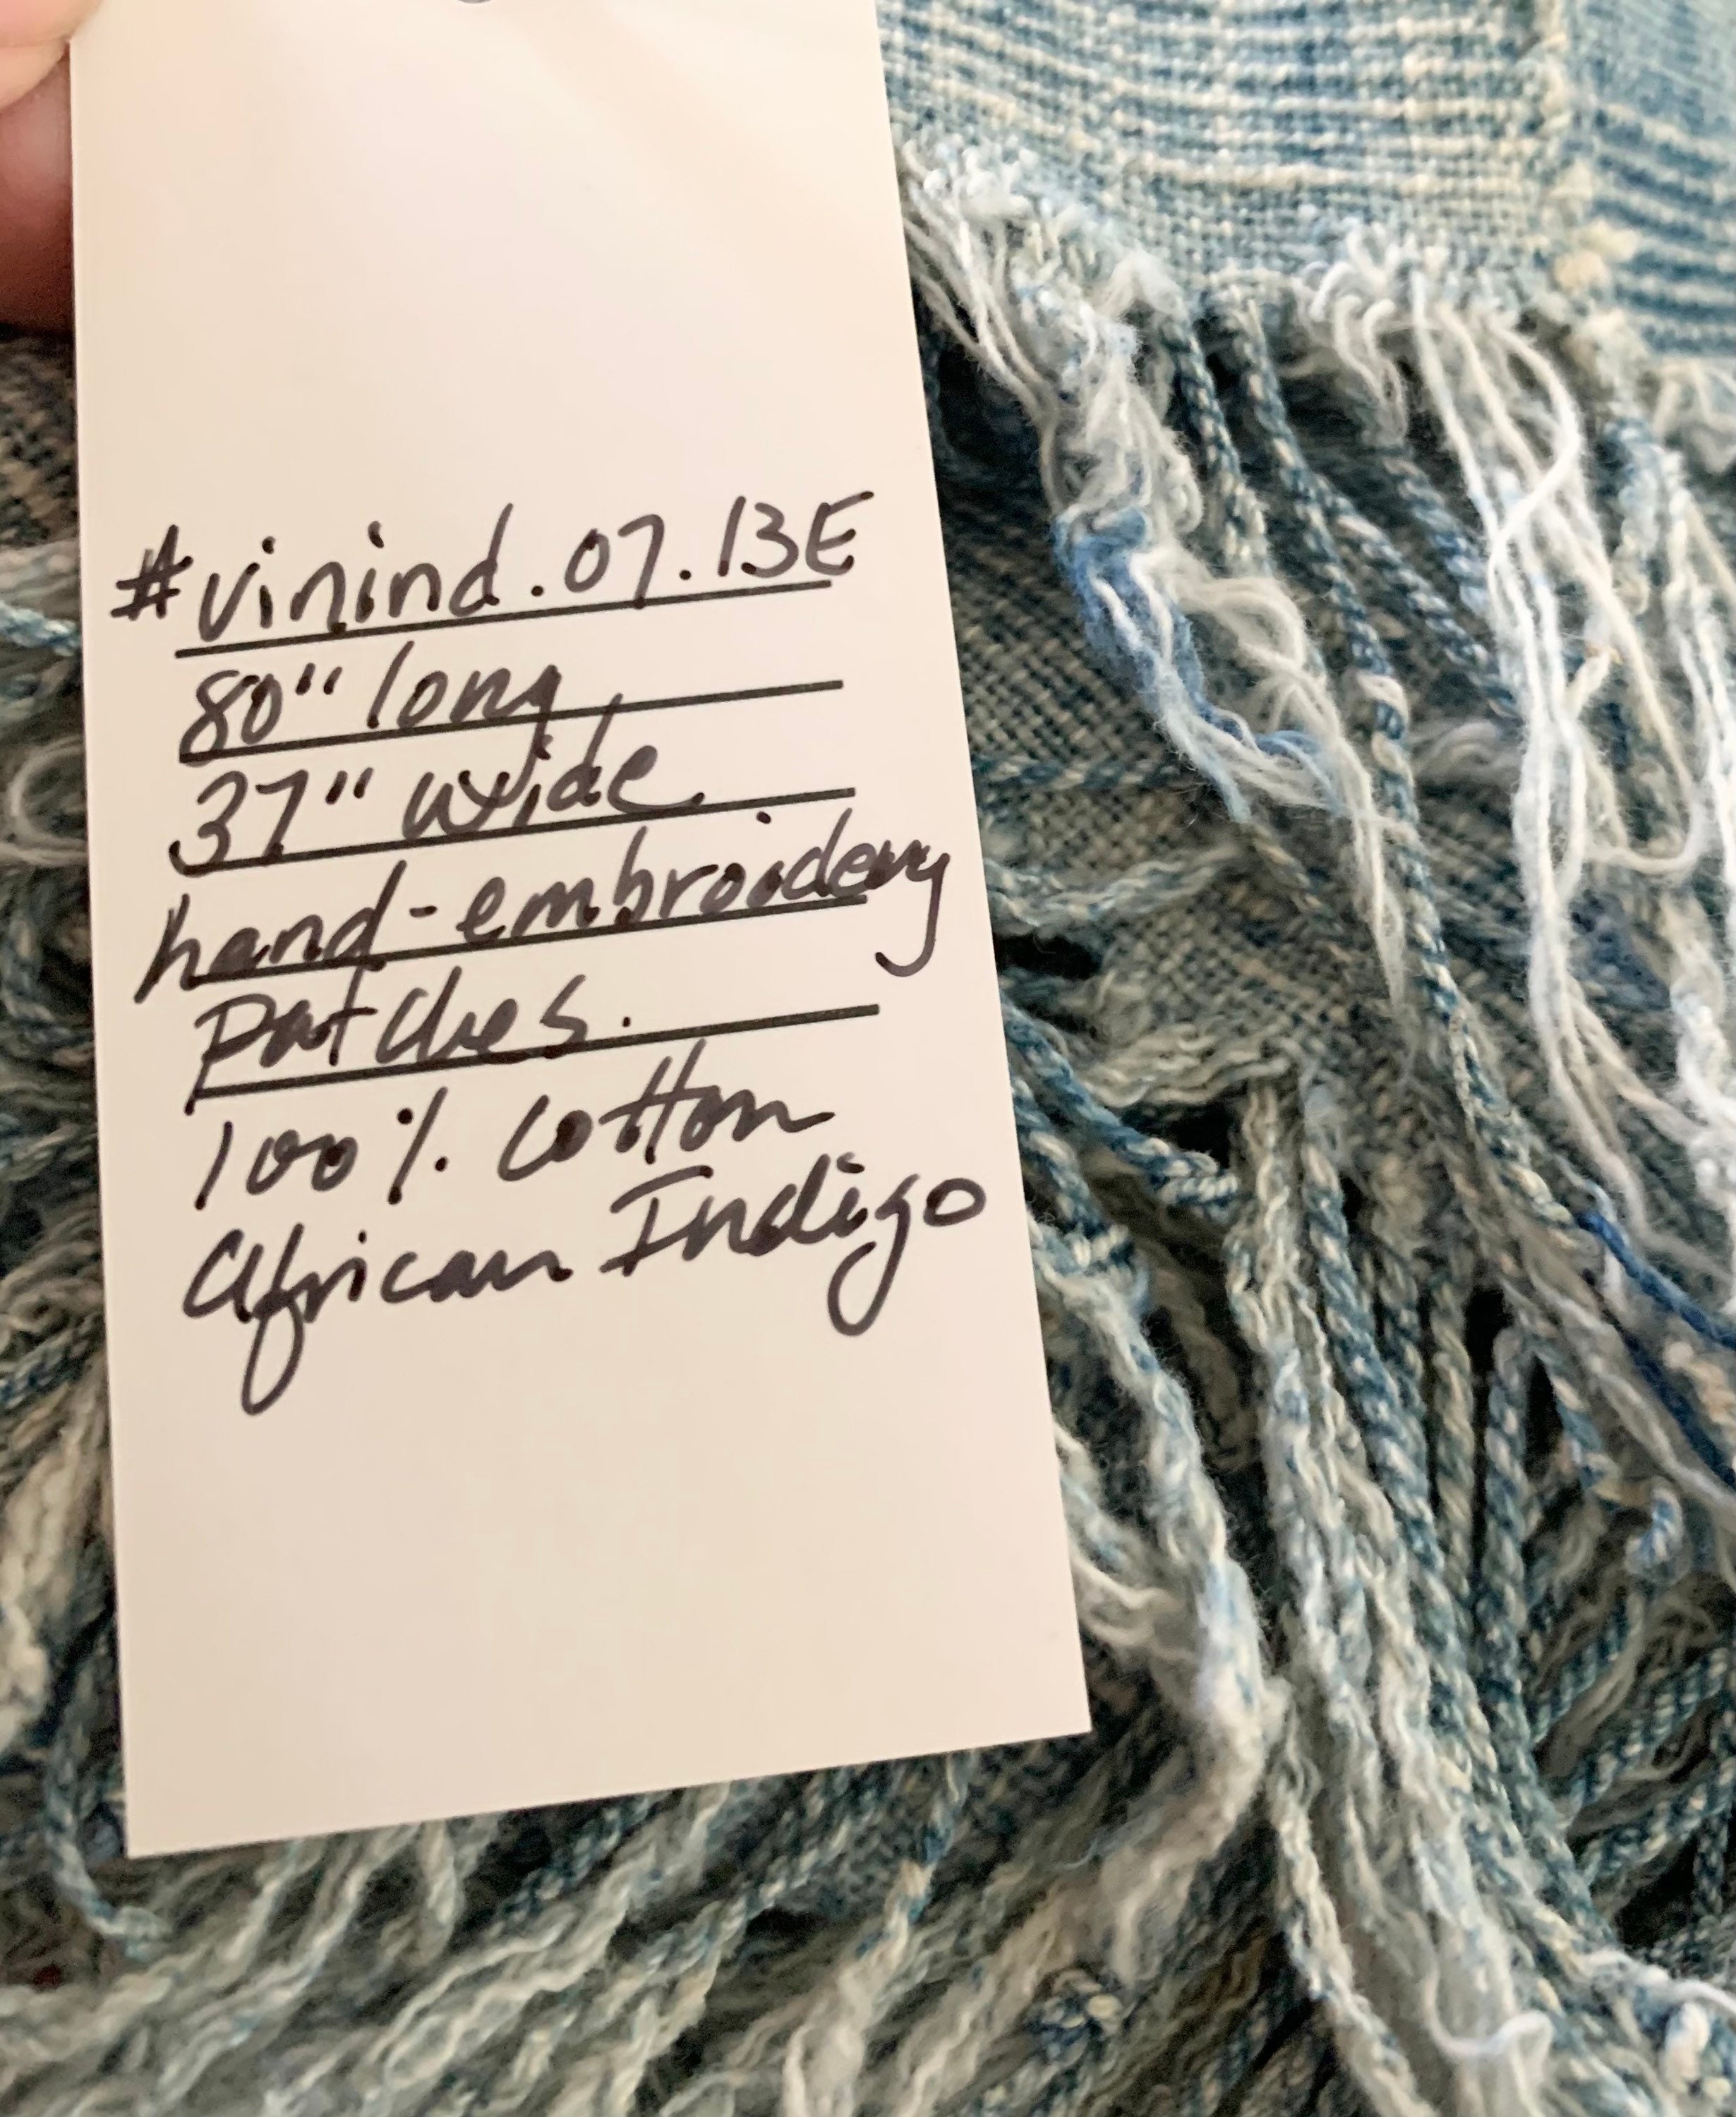 #vinind.07.13E
80" long
37" wide
hand-embroidery
patches.
100% cotton
African Indigo